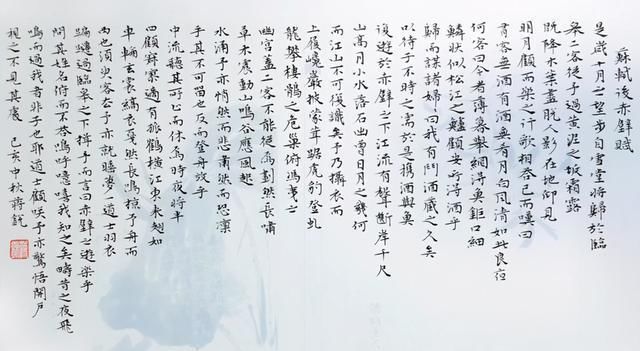 蘇軾後赤壁賦
是歲十月之望步自雪堂將歸於臨
皋二客從予過黃泥之坂霜露
既降木葉盡脫人影在地仰見
明月顧而樂之行歌相答已而嘆曰
有客無酒有酒無肴月白風清如此良夜
何客曰今者薄暮舉網得魚巨口細
鱗狀似松江之鱸顧安所得酒乎
歸而謀諸婦婦曰我有鬥酒藏之久矣
以待子不時之需於是攜酒與魚
復遊於赤壁之下江流有聲斷岸千尺
山高月小水落石出曾日月之幾何
而江山不可復識矣予乃攝衣而
上履巉巖披蒙茸踞虎豹登虬
龍攀棲鶻之危巢俯馮夷之
幽宮蓋二客不能從焉劃然長嘯
草木震動山鳴谷應風起
水涌予亦悄然而悲肅然而恐凜
乎其不可留也反而登舟放乎
中流聽其所止而休焉時夜將半
四顧寂寥適有孤鶴橫江東來翅如
車輪玄裳縞衣戛然長鳴掠予舟而
西也須臾客去予亦就睡夢一道士羽衣
蹁躚過臨皋之下揖予而言曰赤壁之遊樂乎
問其姓名俯而不答嗚呼噫嘻我知之矣疇昔之夜飛
鳴而過我者非子也耶道士顧笑予亦驚悟開戶
視之不見其處 己亥中秋蔣銳